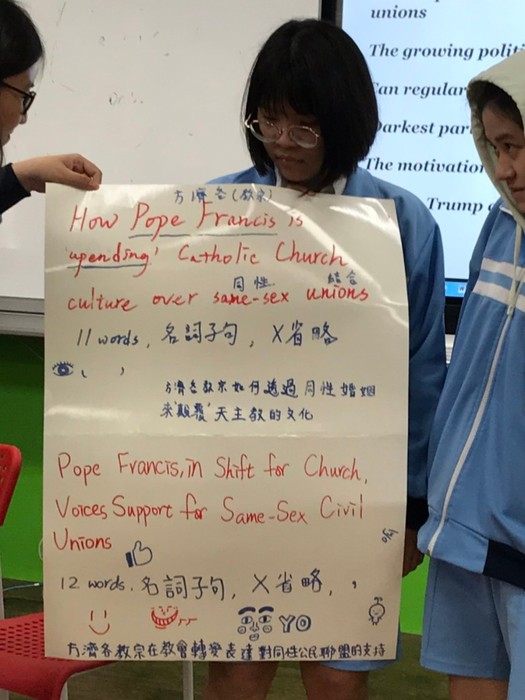 unions
The growing politi
Can regular
Darkest par
The motivation
Trump
方濟各(教宗)
How Pope Francis is
'upending' Catholic Church
同性 結合
culture over same-sex unions
11 words, 名詞子句, X省略
方濟各教宗如何透過同性婚姻
來'顛覆'天主教的文化
Pope Francis, in Shift for Church,
Voices Support for Same-Sex Civil
Unions
12 words, 名詞子句, X省略,
YO
方濟各教宗在教會轉變表達對同性公民聯盟的支持